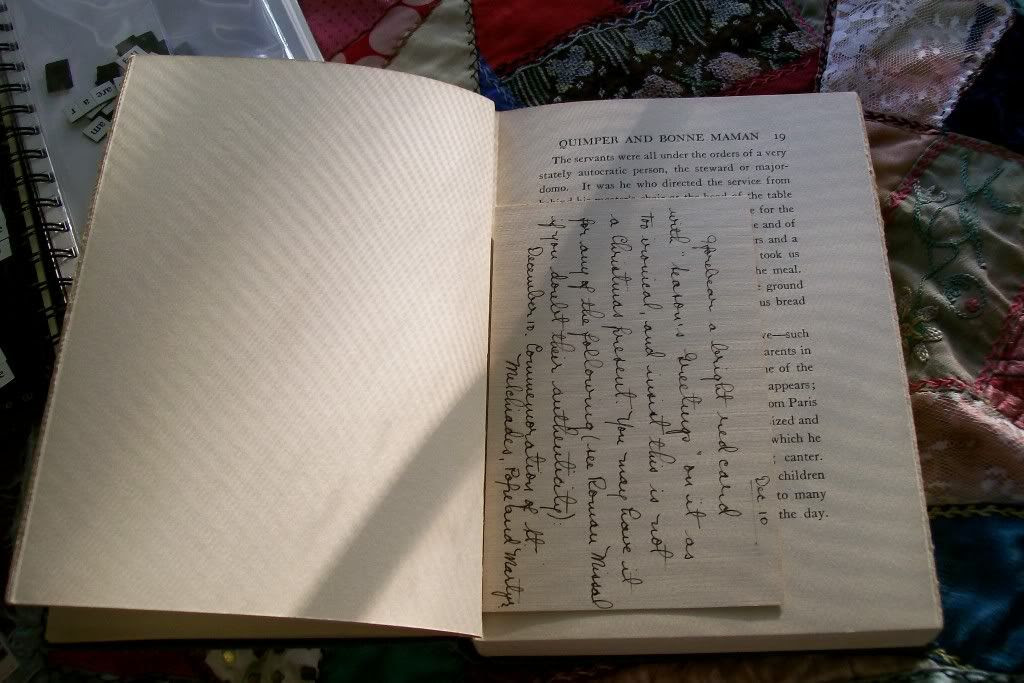 are a r
am
QUIMPER AND BONNE MAMAN 19
The servants were all under the orders of a very
stately autocratic person, the steward or major-
domo. It was he who directed the service from
behind his master's chair at the head of the table
e for the
e and of
rs and a
took us
he meal.
ground
us bread
ve—such
arents in
e of the
appears;
om Paris
ized and
which he
canter.
children
to many
the day.
Dec 10
a bright red card
with "Season's Greetings" on it as
to ironical, and insist this is not
a Christmas present. You may have it
for any of the following (see Roman Missal
if you doubt their authenticity):
December 10. Commemoration of St
Melchiades, Pope and Martyr